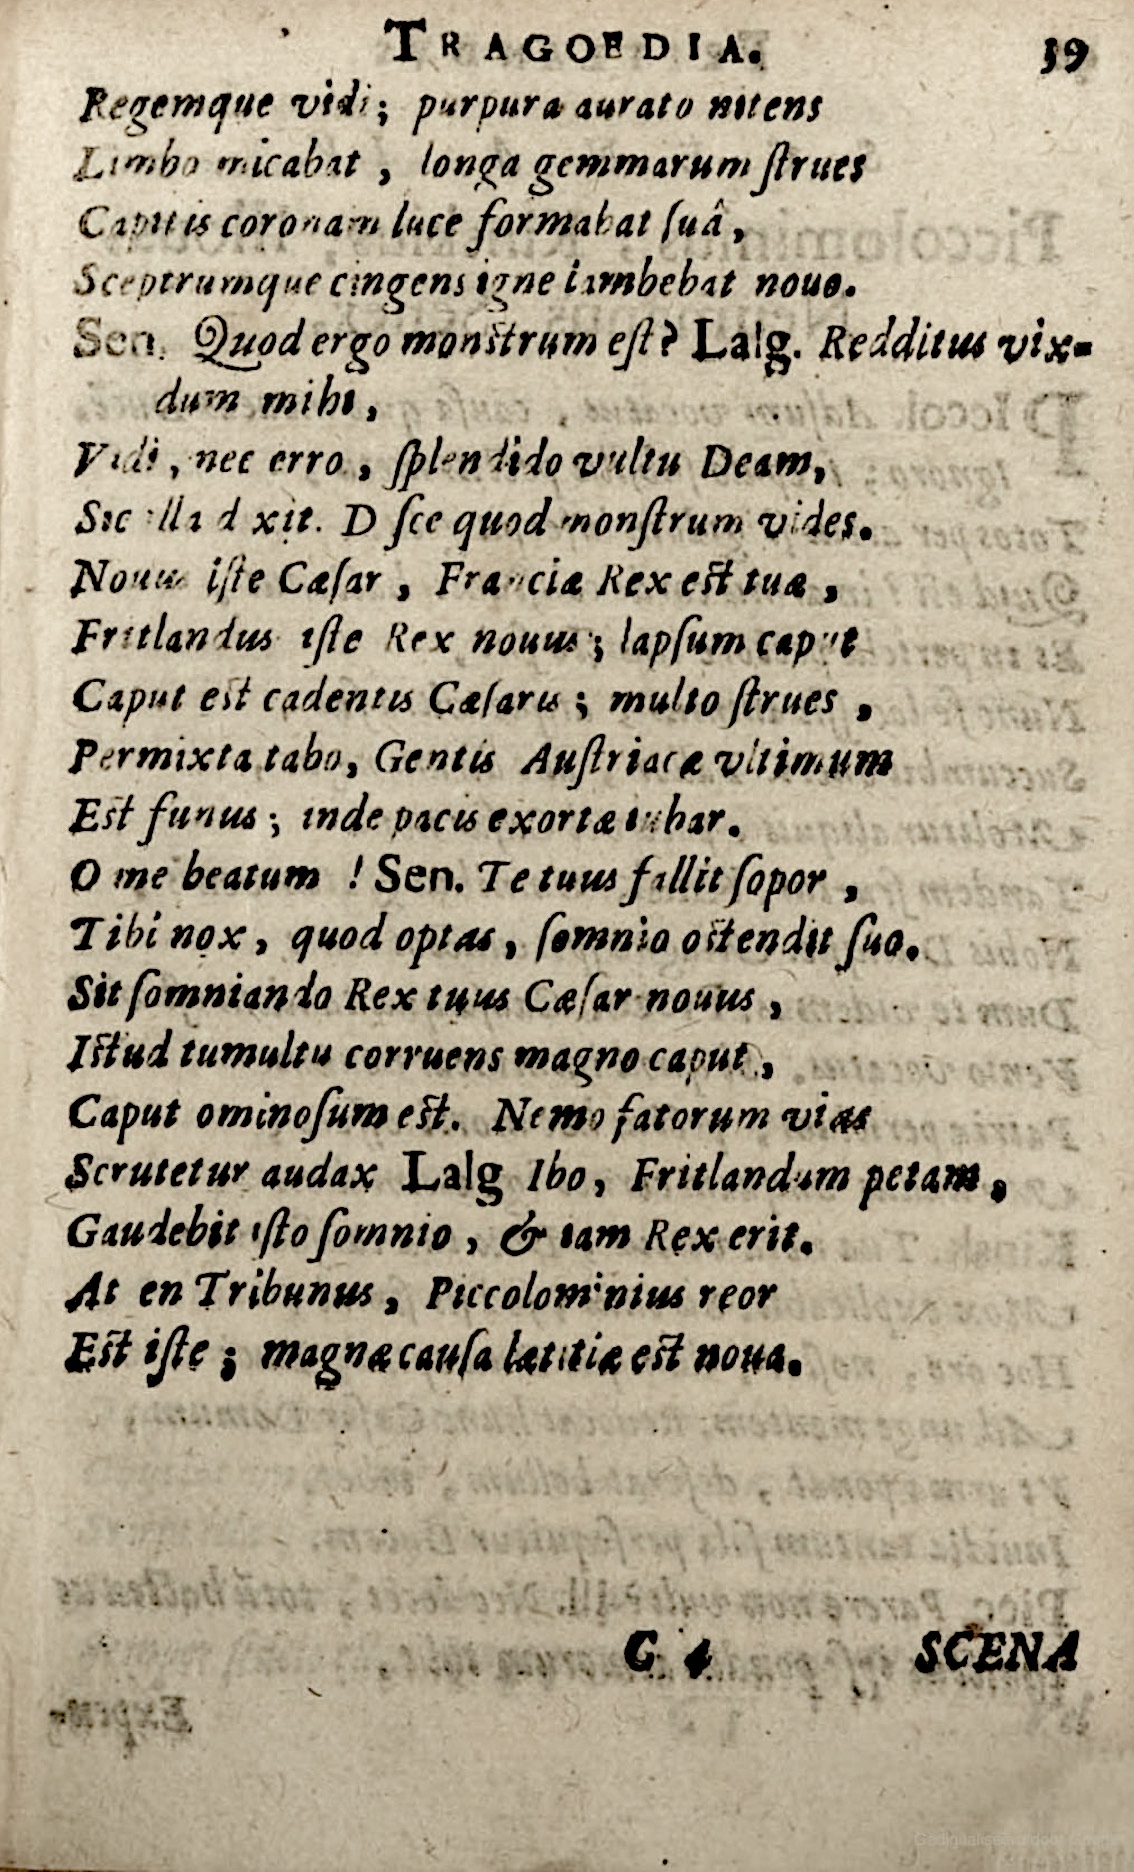 TRAGOEDIA. 39
Regemque vidi; purpura aurato nitens
Limbo micabat, longa gemmarum ſtrues
Capitis coronam luce formabat ſuâ,
Sceptrumque cingens igne lambebat nouo.
Sen. Quod ergo monſtrum eſt? Lalg. Redditus vix-
dum mihi,
Vidi, nec erro, ſplendido vultu Deam,
Sic illa dixit. Diſce quod monſtrum vides.
Nouus iſte Cæſar, Franciæ Rex eſt tuæ,
Fritlandus iſte Rex nouus; lapſum caput
Caput eſt cadentis Cæſaris; multo ſtrues,
Permixta tabo, Gentis Auſtriacæ vltimum
Eſt funus; inde pacis exortæ iubar.
O me beatum! Sen. Te tuus fallit ſopor,
Tibi nox, quod optas, ſomnio oſtendit ſuo.
Sit ſomniando Rex tuus Cæſar nouus,
Iſtud tumultu corruens magno caput,
Caput ominoſum eſt. Nemo fatorum vias
Scrutetur audax Lalg Ibo, Fritlandum petam,
Gaudebit iſto ſomnio, & iam Rex erit.
At en Tribunus, Piccolominius reor
Eſt iſte; magnæ cauſa lætitiæ eſt noua.
C 4 SCENA